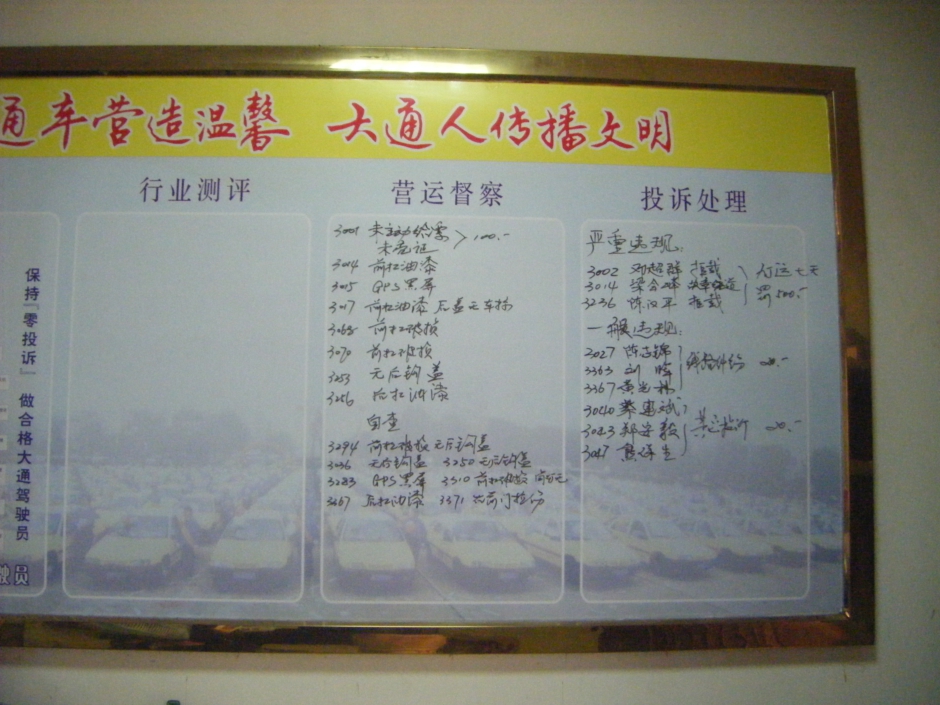 通车营造温馨 大通人传播文明
保持『零投诉』 做合格大通驾驶员
驶员
行业测评
营运督察
3001 未主动给票
100.-
3004 前杠油漆
3005 GPS黑屏
3017 前杠油漆 后盖无车标
3068 前杠破损
3070 前杠破损
3253 无后钩盖
3256 后杠油漆
自查
3294 前杠破损 无后钩盖
3036 无后钩盖 3250 无后钩盖
3283 GPS黑屏 3310 前杠破损
3267 后杠油漆 3371 右前门拉伤
投诉处理
严重违规:
3002 邓超群 拒载
3014 梁分峰
3236 陈汉平 拒载
停运七天
罚500.-
一般违规:
3027 陈志锦
3363 刘晖
3367 黄光林
3040
3043 郑安毅
3047 熊保生